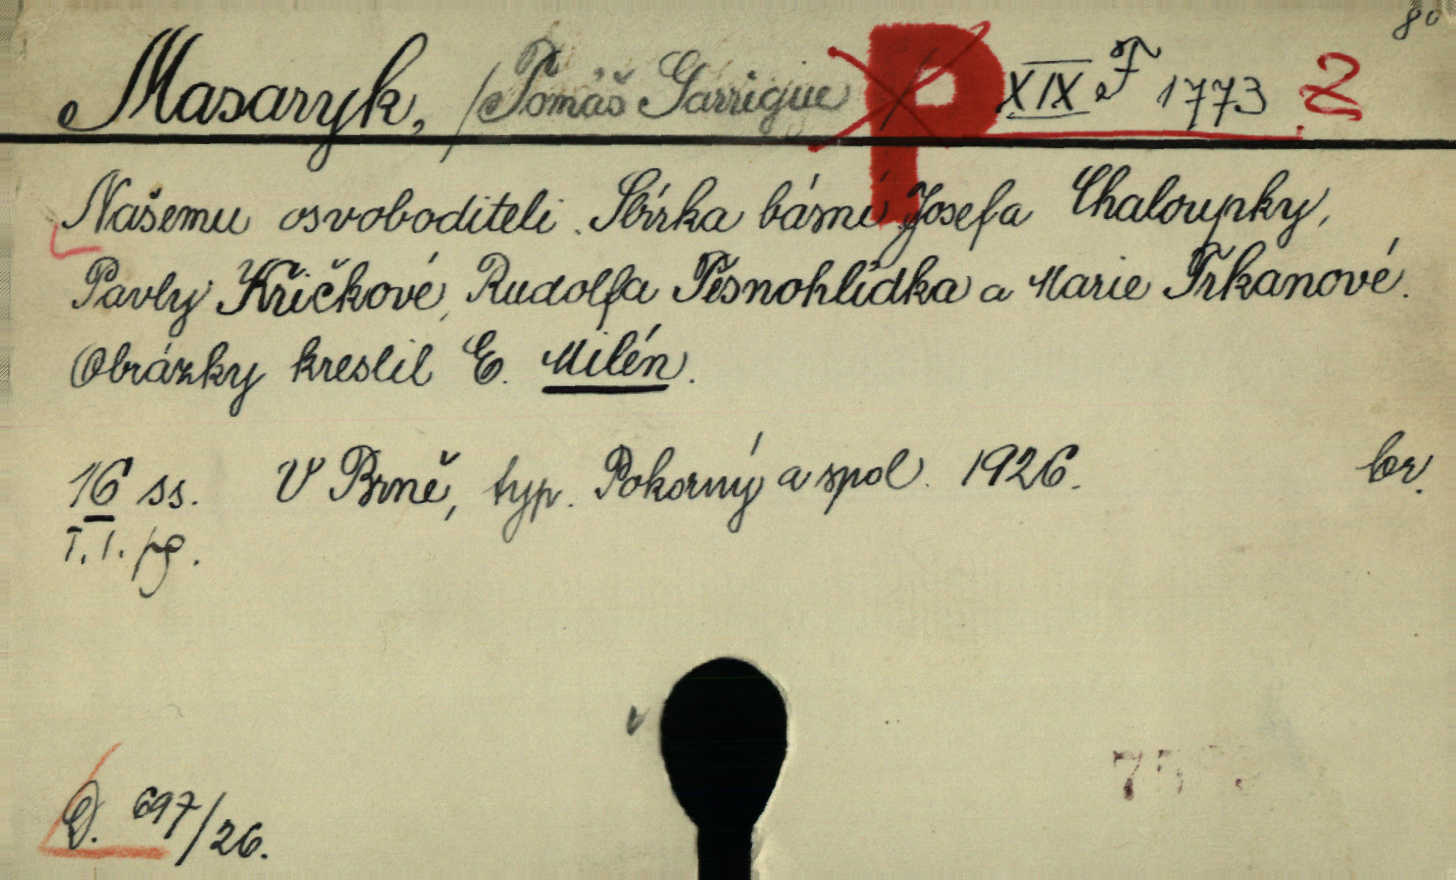 80
Masaryk, /Tomáš Garrigue/ P XIX F 1773 Z
Našemu osvoboditeli. Sbírka básní Josefa Chaloupky,
Pavly Křičkové, Rudolfa Těsnohlídka a Marie Trkanové.
Obrázky kreslil E. Milén.
16 ss. V Brně, typ. Pokorný a spol. 1926. br.
T. 1. pg.
D. 697/26.